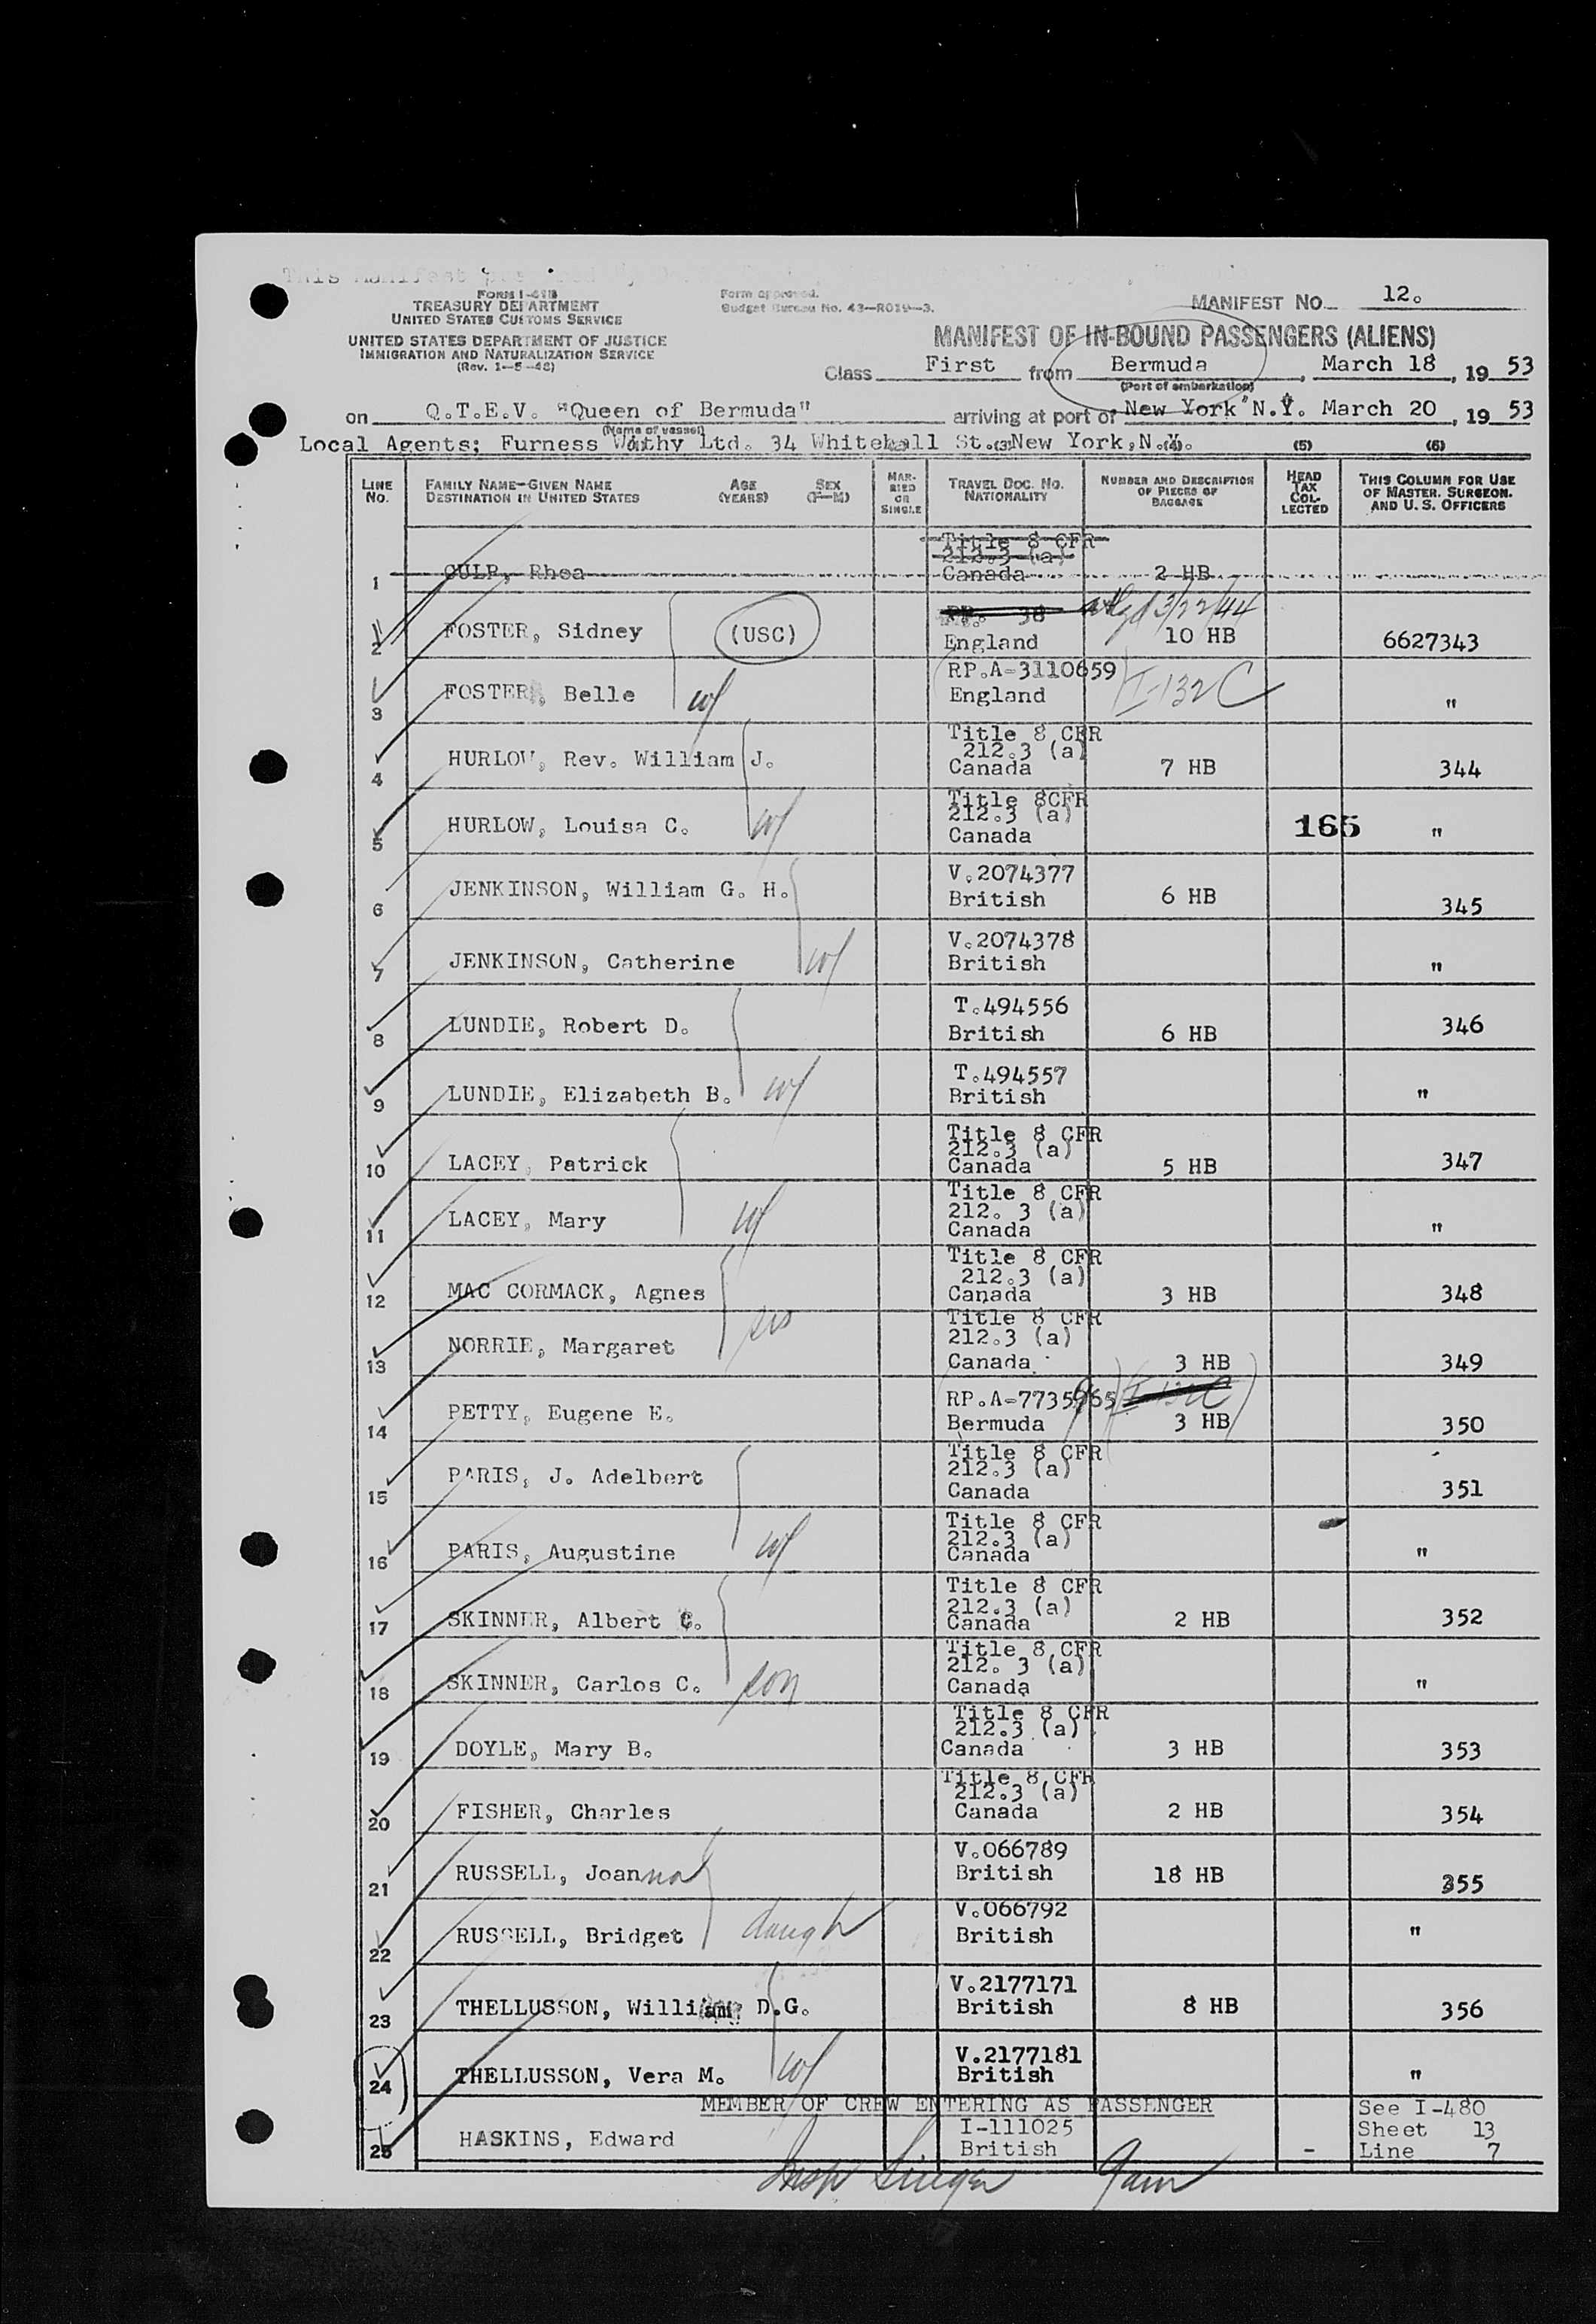 This Manifest
FORM I-418
TREASURY DEPARTMENT
UNITED STATES CUSTOMS SERVICE
UNITED STATES DEPARTMENT OF JUSTICE
IMMIGRATION AND NATURALIZATION SERVICE
(Rev. 1-5-48)
Form approved.
Budget Bureau No. 43-R019-3.
MANIFEST NO. 12.
MANIFEST OF IN-BOUND PASSENGERS (ALIENS)
Class First from Bermuda, March 18, 1953
(Port of embarkation)
on Q.T.E.V. "Queen of Bermuda" arriving at port of New York N.Y. March 20, 1953
(Name of vessel)
Local Agents; Furness Withy Ltd. 34 Whitehall St. (3) New York, N.Y. (4) (5) (6)
LINE NO. FAMILY NAME-GIVEN NAME DESTINATION IN UNITED STATES AGE (YEARS) SEX (F-M) MARRIED OR SINGLE TRAVEL DOC. NO. NATIONALITY NUMBER AND DESCRIPTION OF PIECES OF BAGGAGE HEAD TAX COLLECTED THIS COLUMN FOR USE OF MASTER, SURGEON, AND U. S. OFFICERS
1 CULP, Rhea Title 8 CFR 212.3 (a) Canada 2 HB
2 FOSTER, Sidney (USC) 38 England 3/22/44 10 HB 6627343
3 FOSTER, Belle w/ RP.A-3110659 England I-132C "
4 HURLOW, Rev. William J. Title 8 CFR 212.3 (a) Canada 7 HB 344
5 HURLOW, Louisa C. w/ Title 8CFR 212.3 (a) Canada 165 "
6 JENKINSON, William G. H. V.2074377 British 6 HB 345
7 JENKINSON, Catherine w/ V.2074378 British "
8 LUNDIE, Robert D. T.494556 British 6 HB 346
9 LUNDIE, Elizabeth B. w/ T.494557 British "
10 LACEY, Patrick Title 8 CFR 212.3 (a) Canada 5 HB 347
11 LACEY, Mary w/ Title 8 CFR 212. 3 (a) Canada "
12 MAC CORMACK, Agnes Title 8 CFR 212.3 (a) Canada 3 HB 348
13 NORRIE, Margaret sis Title 8 CFR 212.3 (a) Canada 3 HB 349
14 PETTY, Eugene E. RP.A-7735965 Bermuda I-132C 3 HB 350
15 PARIS, J. Adelbert Title 8 CFR 212.3 (a) Canada 351
16 PARIS, Augustine w/ Title 8 CFR 212.3 (a) Canada "
17 SKINNER, Albert C. Title 8 CFR 212.3 (a) Canada 2 HB 352
18 SKINNER, Carlos C. son Title 8 CFR 212. 3 (a) Canada "
19 DOYLE, Mary B. Title 8 CFR 212.3 (a) Canada 3 HB 353
20 FISHER, Charles Title 8 CFR 212.3 (a) Canada 2 HB 354
21 RUSSELL, Joanna V.066789 British 18 HB 355
22 RUSSELL, Bridget daugh V.066792 British "
23 THELLUSSON, William D.G. V.2177171 British 8 HB 356
24 THELLUSSON, Vera M. w/ V.2177181 British "
MEMBER OF CREW ENTERING AS PASSENGER
25 HASKINS, Edward I-111025 British - See I-480 Sheet 13 Line 7
Insp Singer 9am